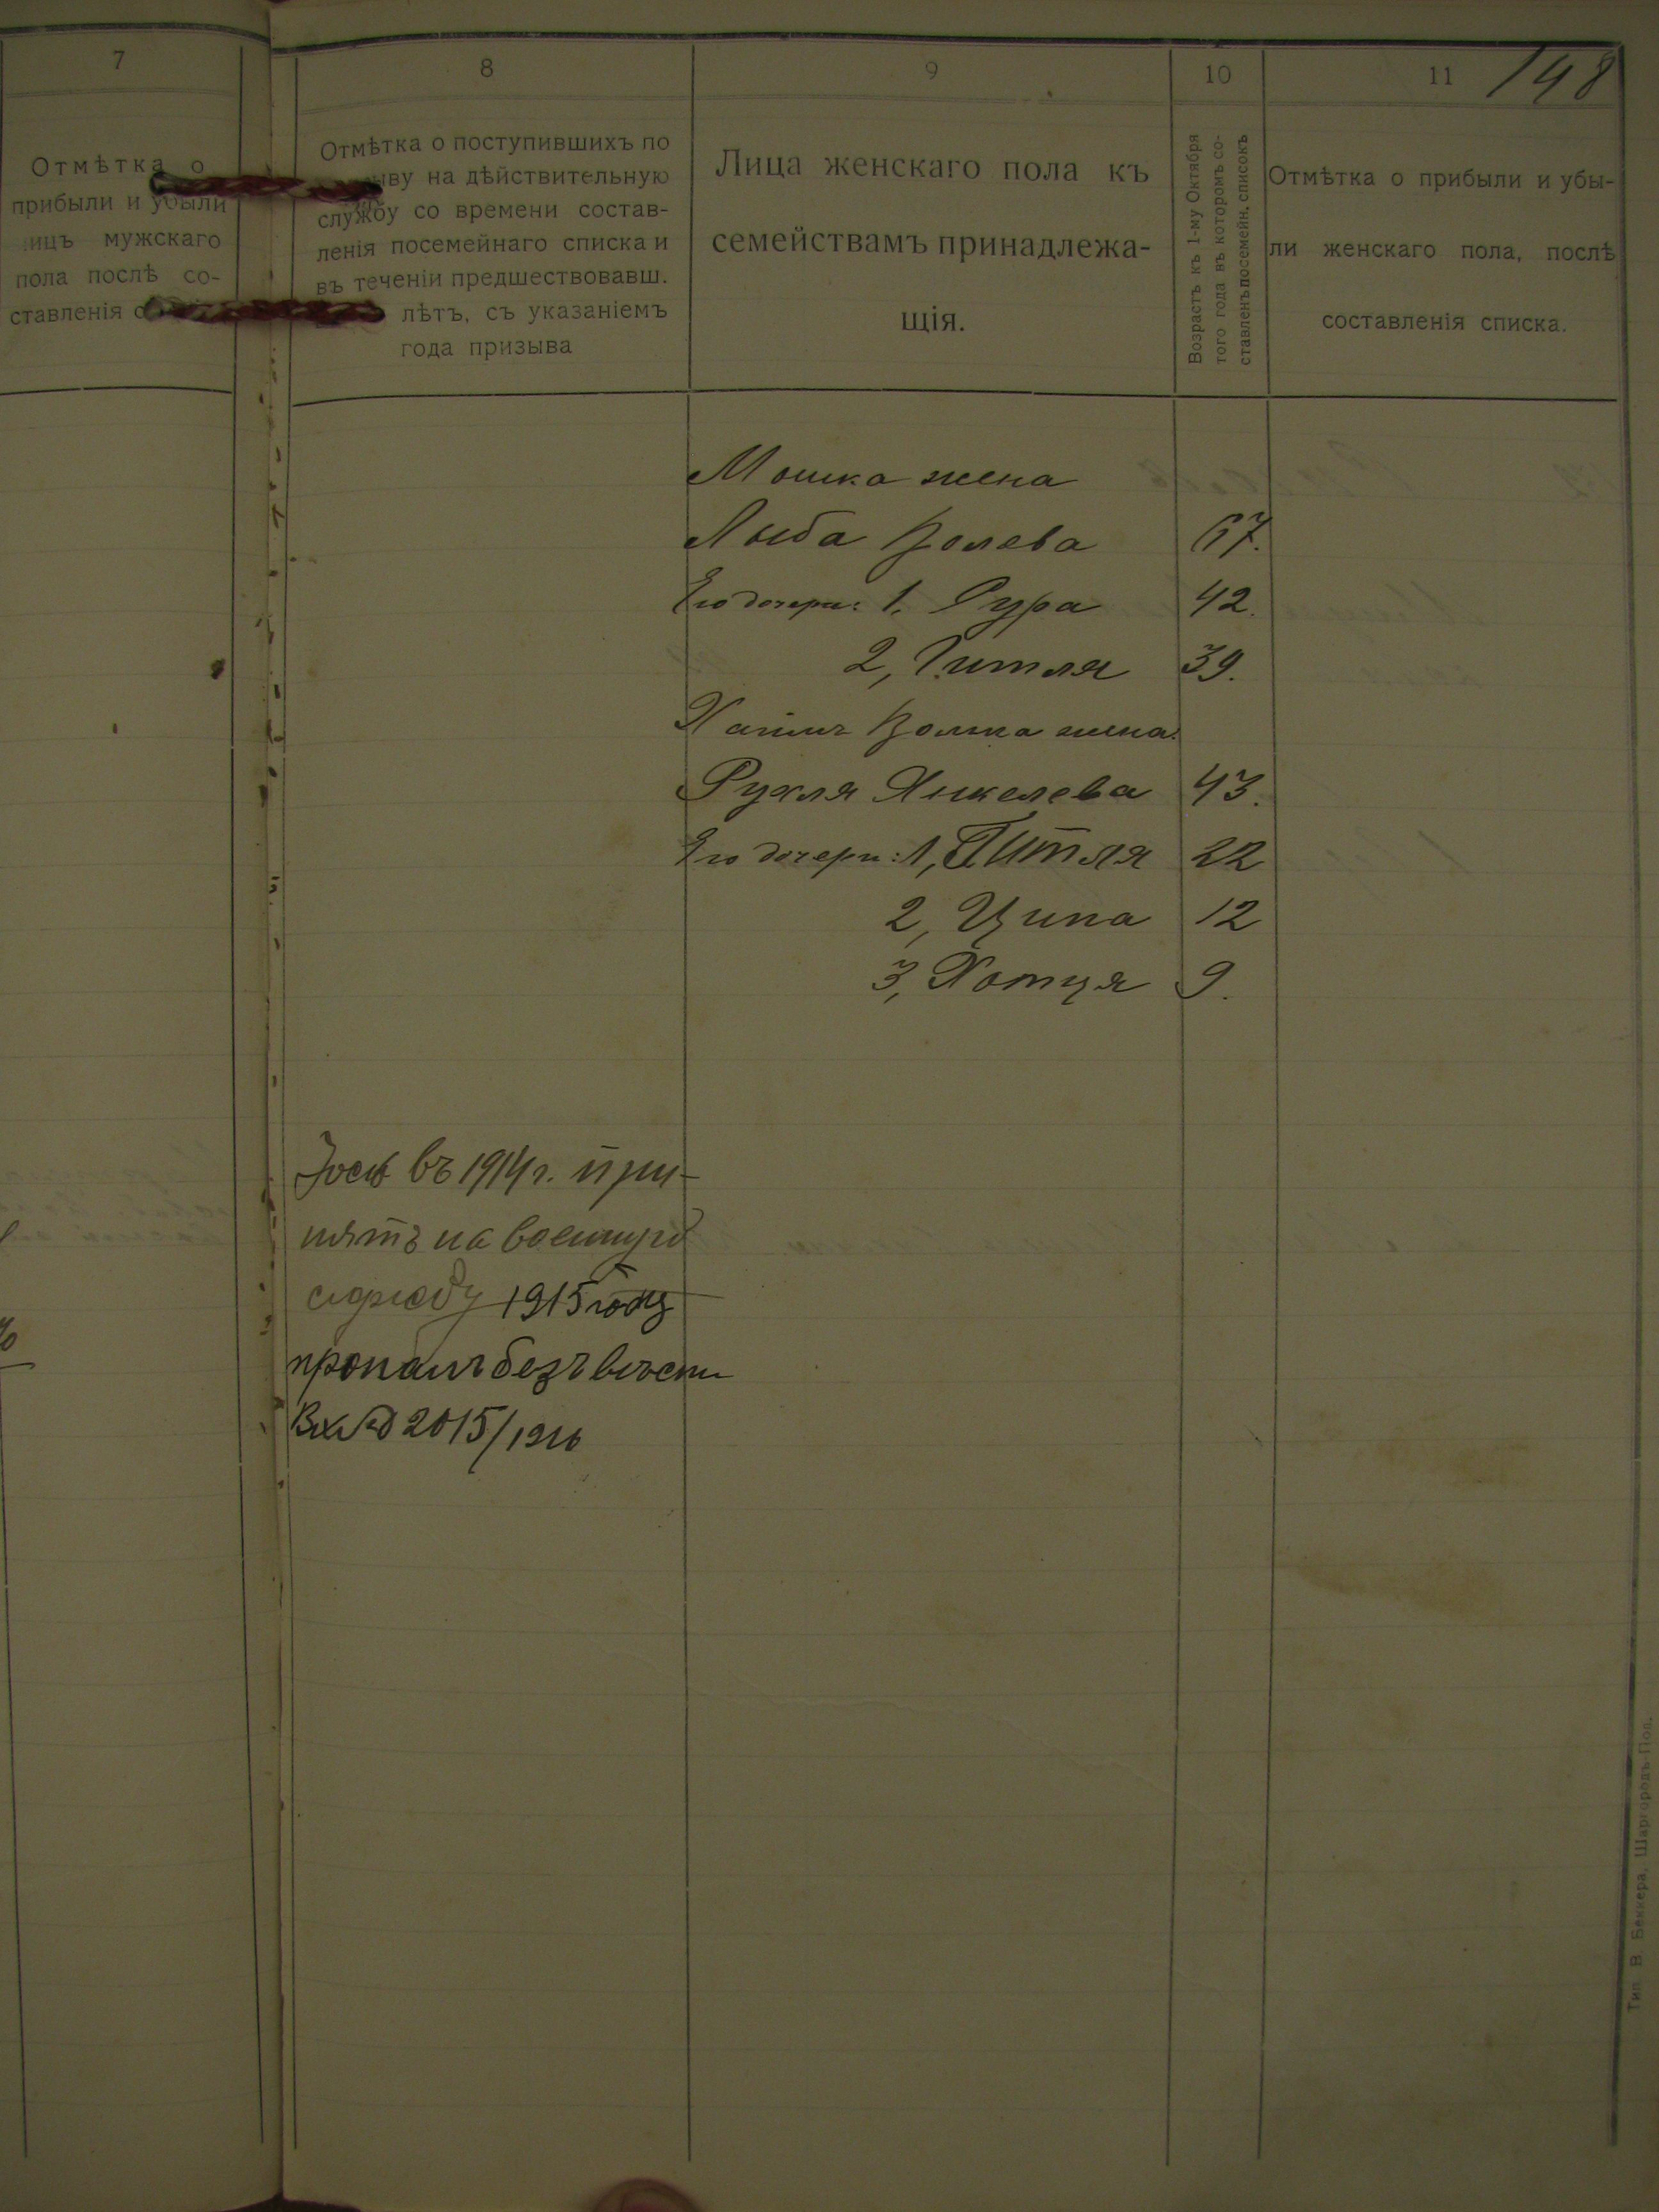 7
Отмѣтка о
прибыли и убыли
лицъ мужскаго
пола послѣ со-
ставленія
8
Отмѣтка о поступившихъ по
ыву на дѣйствительную
службу со времени состав-
ленія посемейнаго списка и
въ теченіи предшествовавш.
лѣтъ, съ указаніемъ
года призыва
9
Лица женскаго пола къ
семействамъ принадлежа-
щія.
10
Возрастъ къ 1-му Октября
того года въ которомъ со-
ставленъ посемейн. списокъ
11 148
Отмѣтка о прибыли и убы-
ли женскаго пола, послѣ
составленія списка.
Мошка жена
Лыба Волева 67.
Его дочери: 1. Сура 42.
2, Гитля 39.
Хаимъ Волька жена
Рухля Янкелева 43.
Его дочери: 1, Гитля 22
2, Ципа 12
3, Хотця 9.
въ 1914 г. при-
нятъ на военную
службу 1915 году
пропалъ безъ вѣсти
Вх № 2015/1916
Тип. В. Беккера, Шаргородъ-Под.